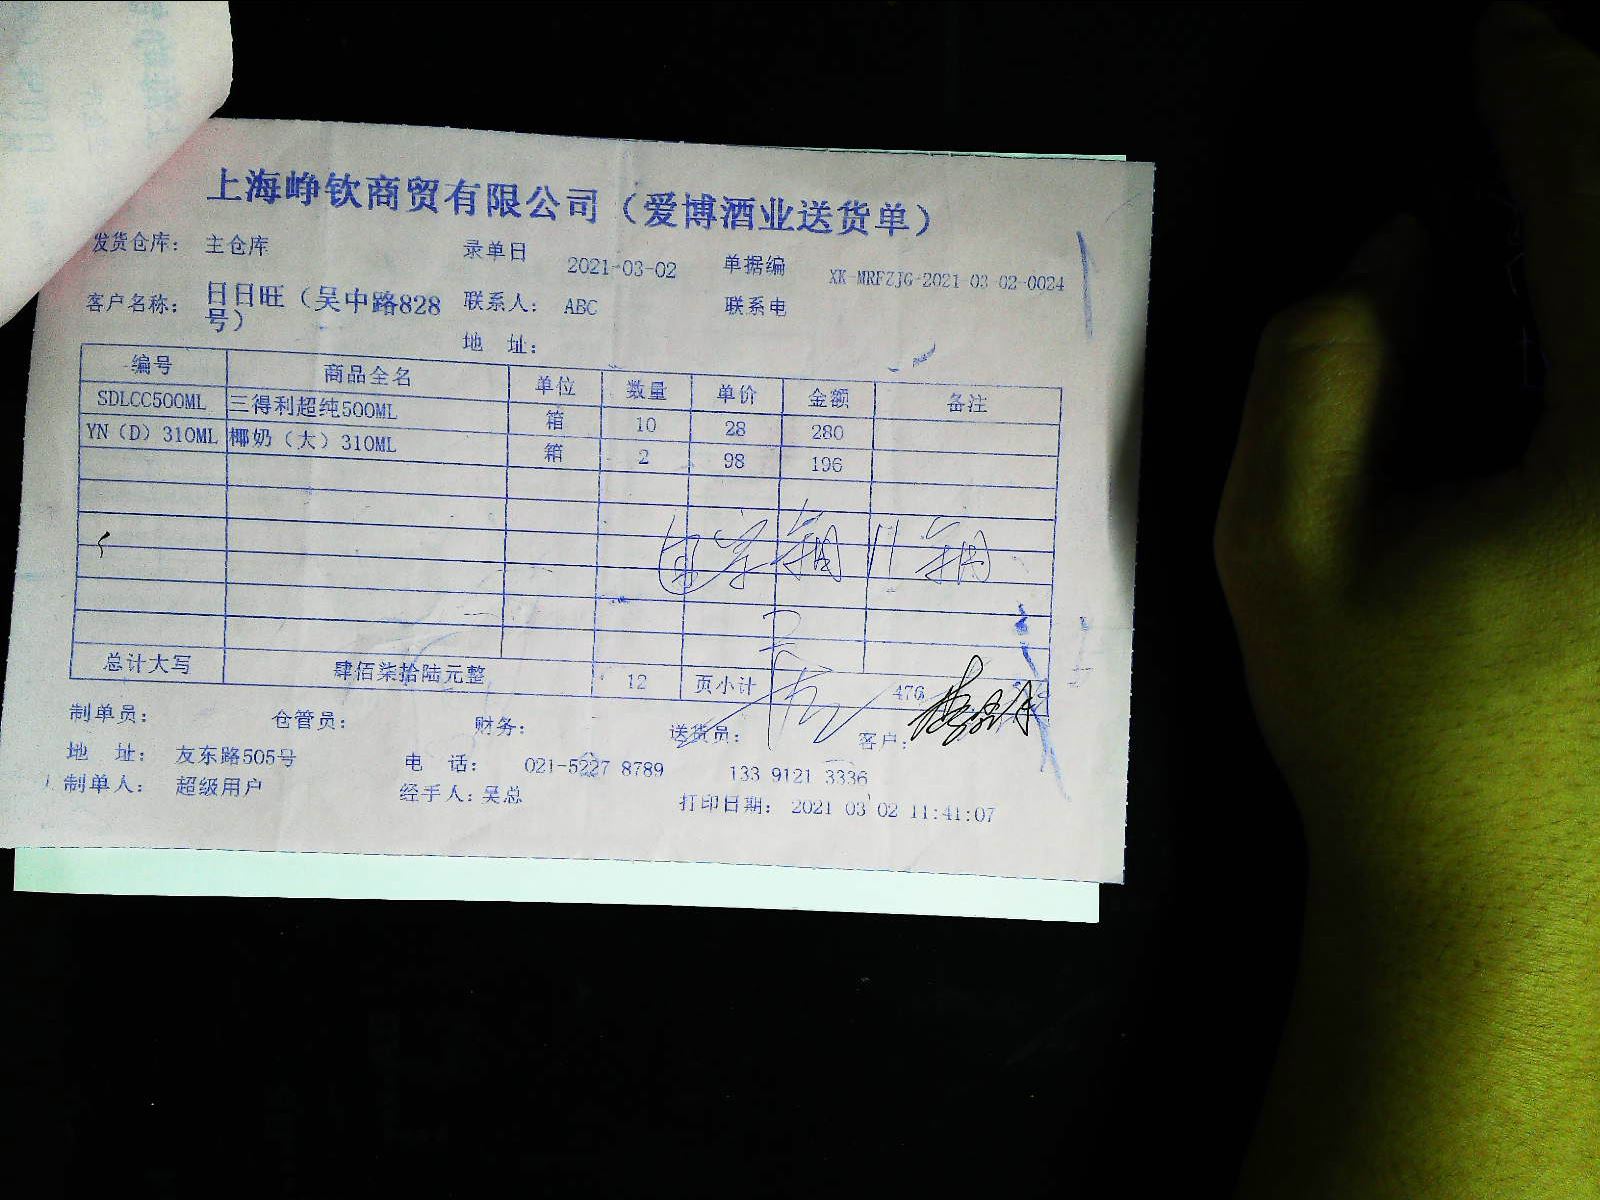 上海峥钦商贸有限公司（爱博酒业送货单）
发货仓库： 主仓库 录单日 2021-03-02 单据编 XK-MRFZJG-2021 03 02-0024
客户名称： 日日旺（吴中路828号） 联系人： ABC 联系电
地 址：
编号 商品全名 单位 数量 单价 金额 备注
SDLCC500ML 三得利超纯500ML 箱 10 28 280
YN（D）310ML 椰奶（大）310ML 箱 2 98 196
总计大写 肆佰柒拾陆元整 12 页小计 476
制单员： 仓管员： 财务： 送货员： 客户：
地 址： 友东路505号 电 话： 021-5227 8789 133 9121 3336
制单人： 超级用户 经手人：吴总 打印日期： 2021 03 02 11:41:07